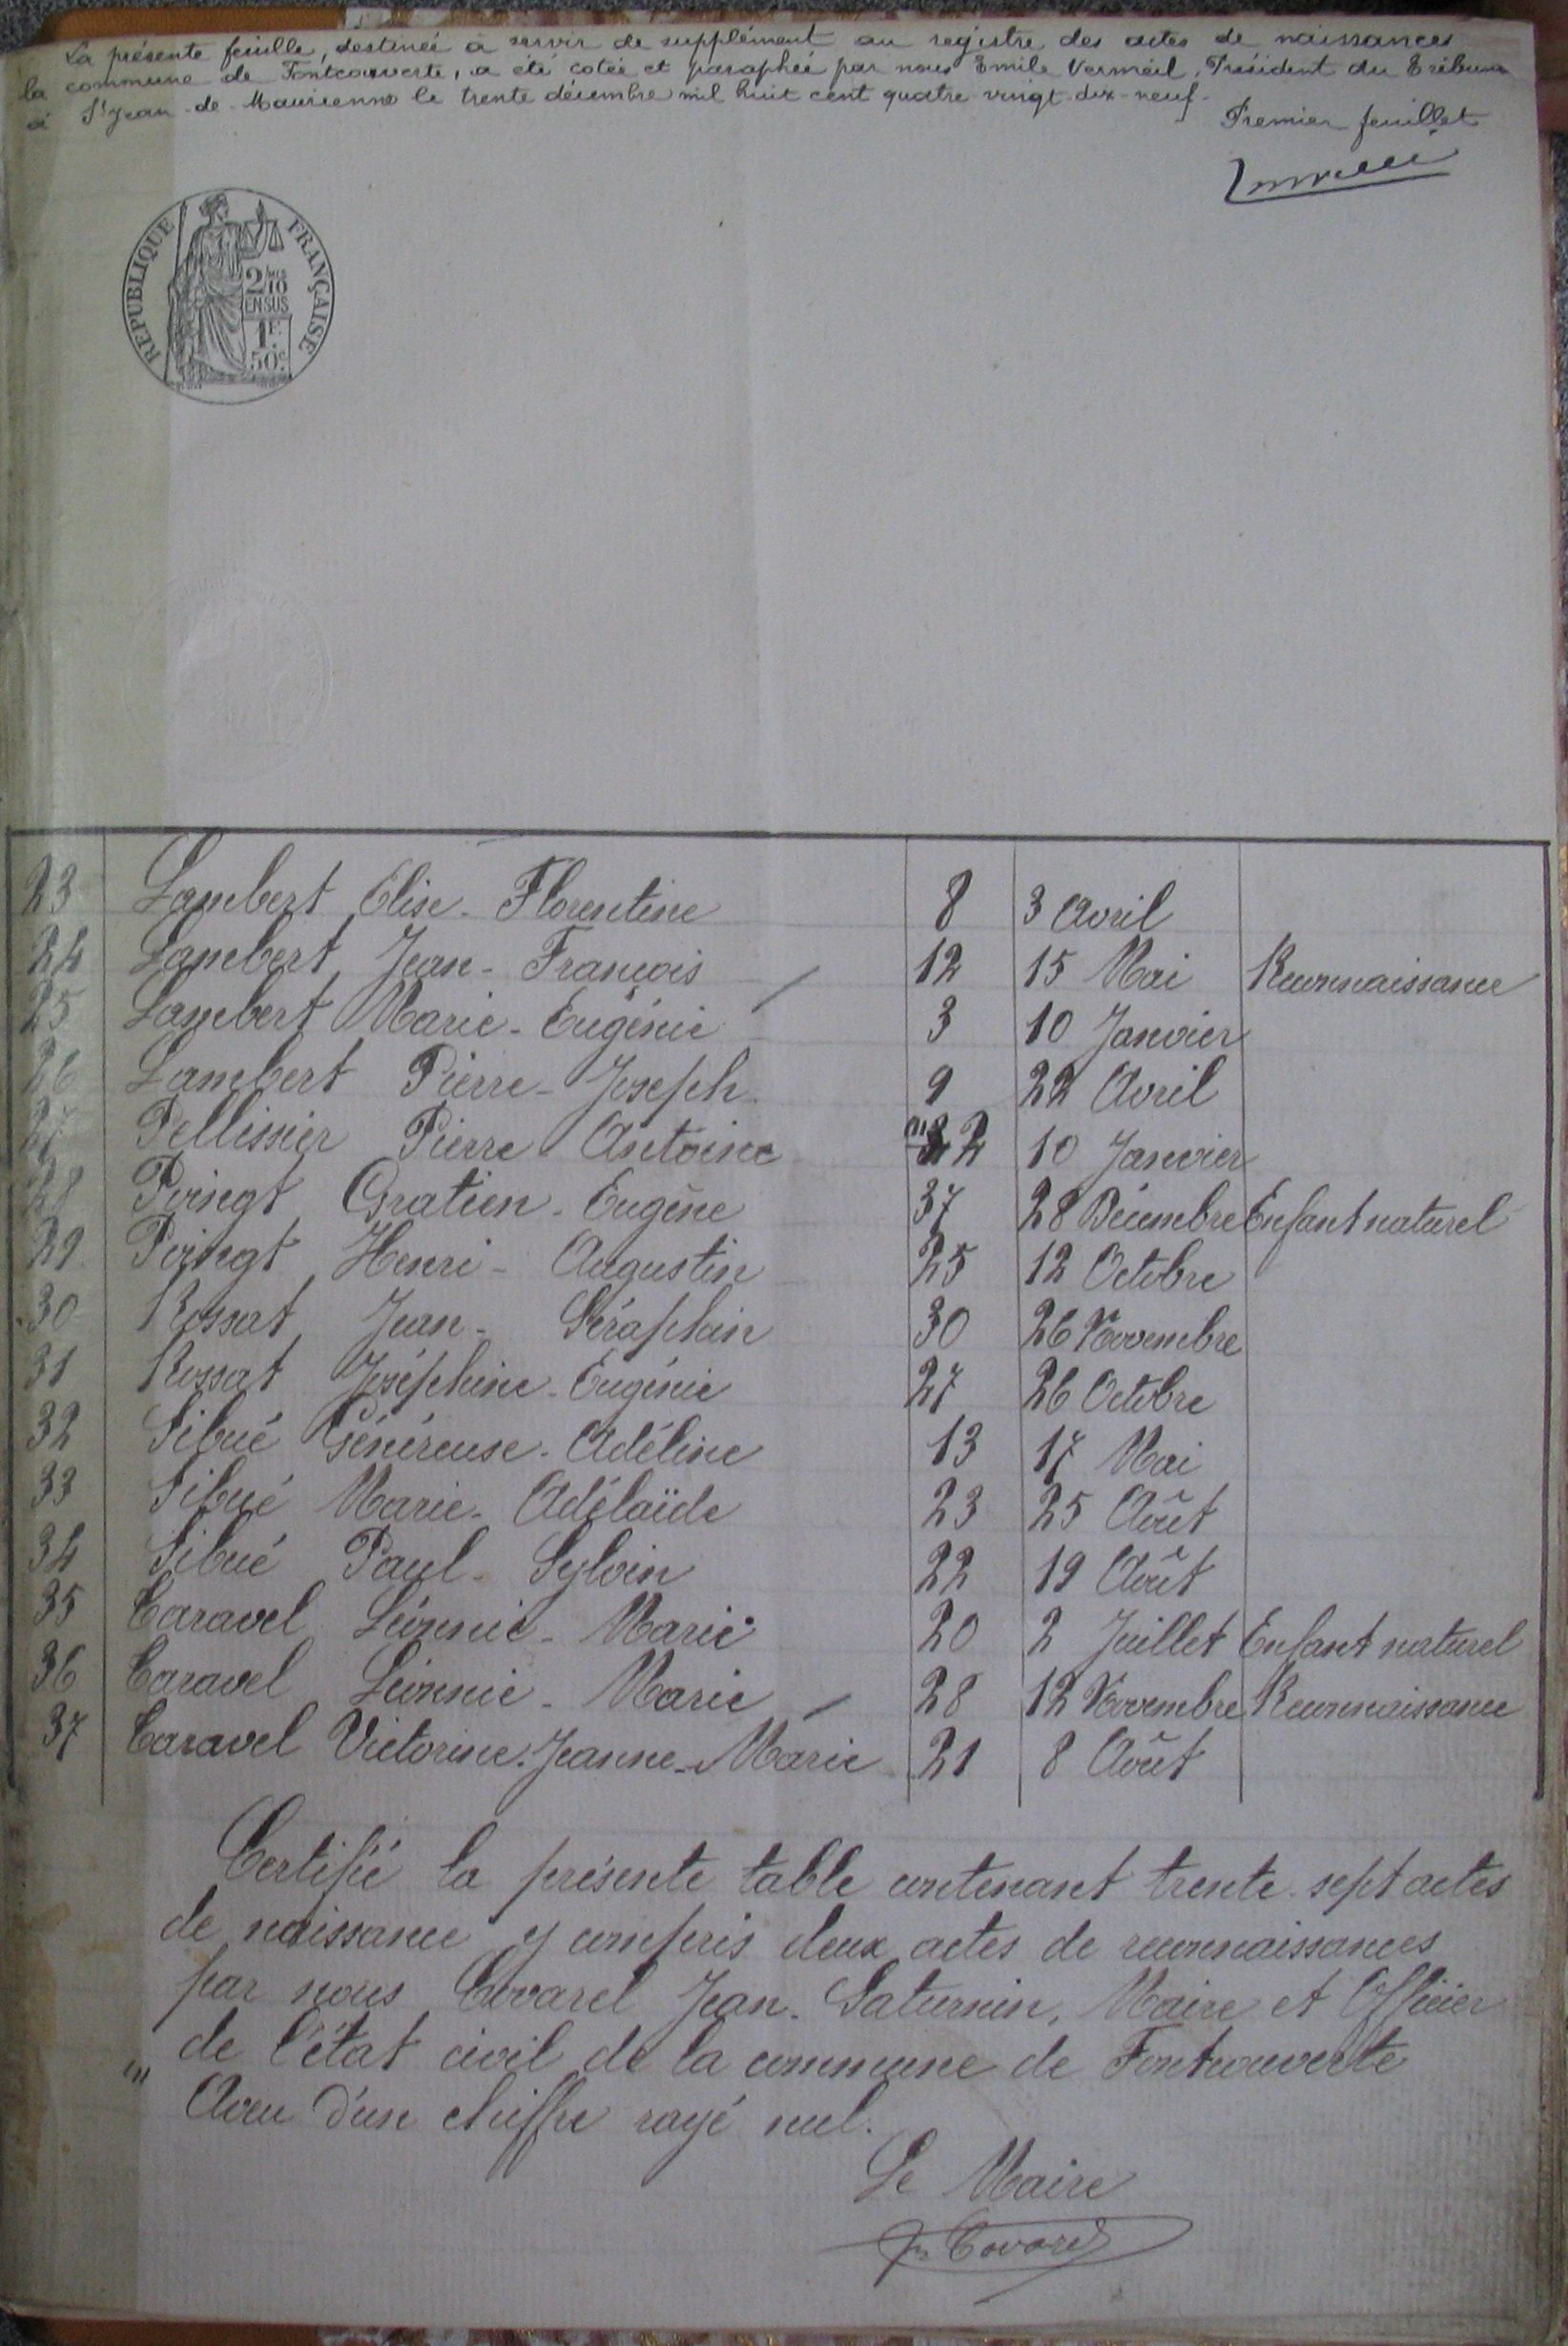 La présente feuille, destinée à servir de supplément au registre des actes de naissances
la commune de Fontcouverte, a été cotée et paraphée par nous Emile Vermeil, Président du Tribunal
à St Jean-de-Maurienne le trente décembre mil huit cent quatre-vingt-dix-neuf.
Premier feuillet
REPUBLIQUE FRANÇAISE
2/10
EN SUS
1F.
50c.
23 Lambert Elise-Florentine 8 3 Avril
24 Lambert Jean-François 12 15 Mai Reconnaissance
25 Lambert Marie-Eugénie 3 10 Janvier
26 Lambert Pierre-Joseph 9 22 Avril
27 Pellissier Pierre Antoine 2 10 Janvier
28 Poingt Gratien-Eugène 37 28 Décembre Enfant naturel
29 Poingt Henri-Augustin 25 12 Octobre
30 Rossat Jean-Séraphin 30 26 Novembre
31 Rossat Joséphine-Eugénie 27 26 Octobre
32 Sibué Généreuse-Adéline 13 17 Mai
33 Sibué Marie-Adélaïde 23 25 Août
34 Sibué Paul-Sylvin 22 19 Août
35 Taravel Léonnie-Marie 20 2 Juillet Enfant naturel
36 Taravel Léonnie-Marie 28 12 Novembre Reconnaissance
37 Taravel Victorine-Jeanne-Marie 21 8 Août
Certifié la présente table contenant trente-sept actes
de naissance y compris deux actes de reconnaissances
par nous Covarel Jean-Saturnin, Maire et Officier
de l'état civil de la commune de Fontcouverte
" Aveu d'un chiffre rayé nul.
Le Maire
Covarel